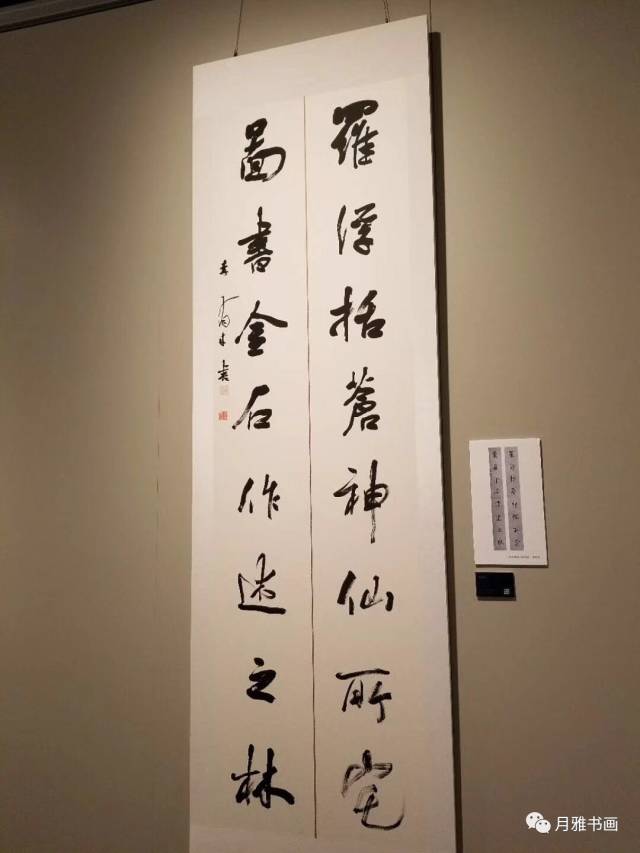 羅浮括蒼神仙所宅
圖書金石作述之林
月雅书画